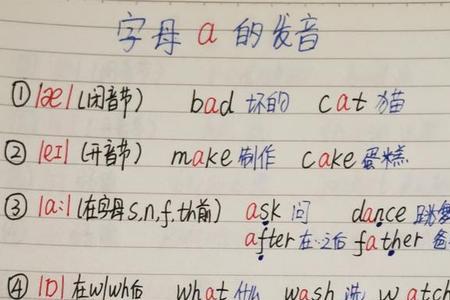 字母 a 的发音
① |æ| (闭音节) bad 坏的 cat 猫
② |eɪ| (开音节) make 制作 cake 蛋糕
③ |a:| (在字母s,n,f,th前) ask 问 dance
after 在…之后 father 爸
④ |ɒ| 在w/wh后 what 什么 wash 洗 watch